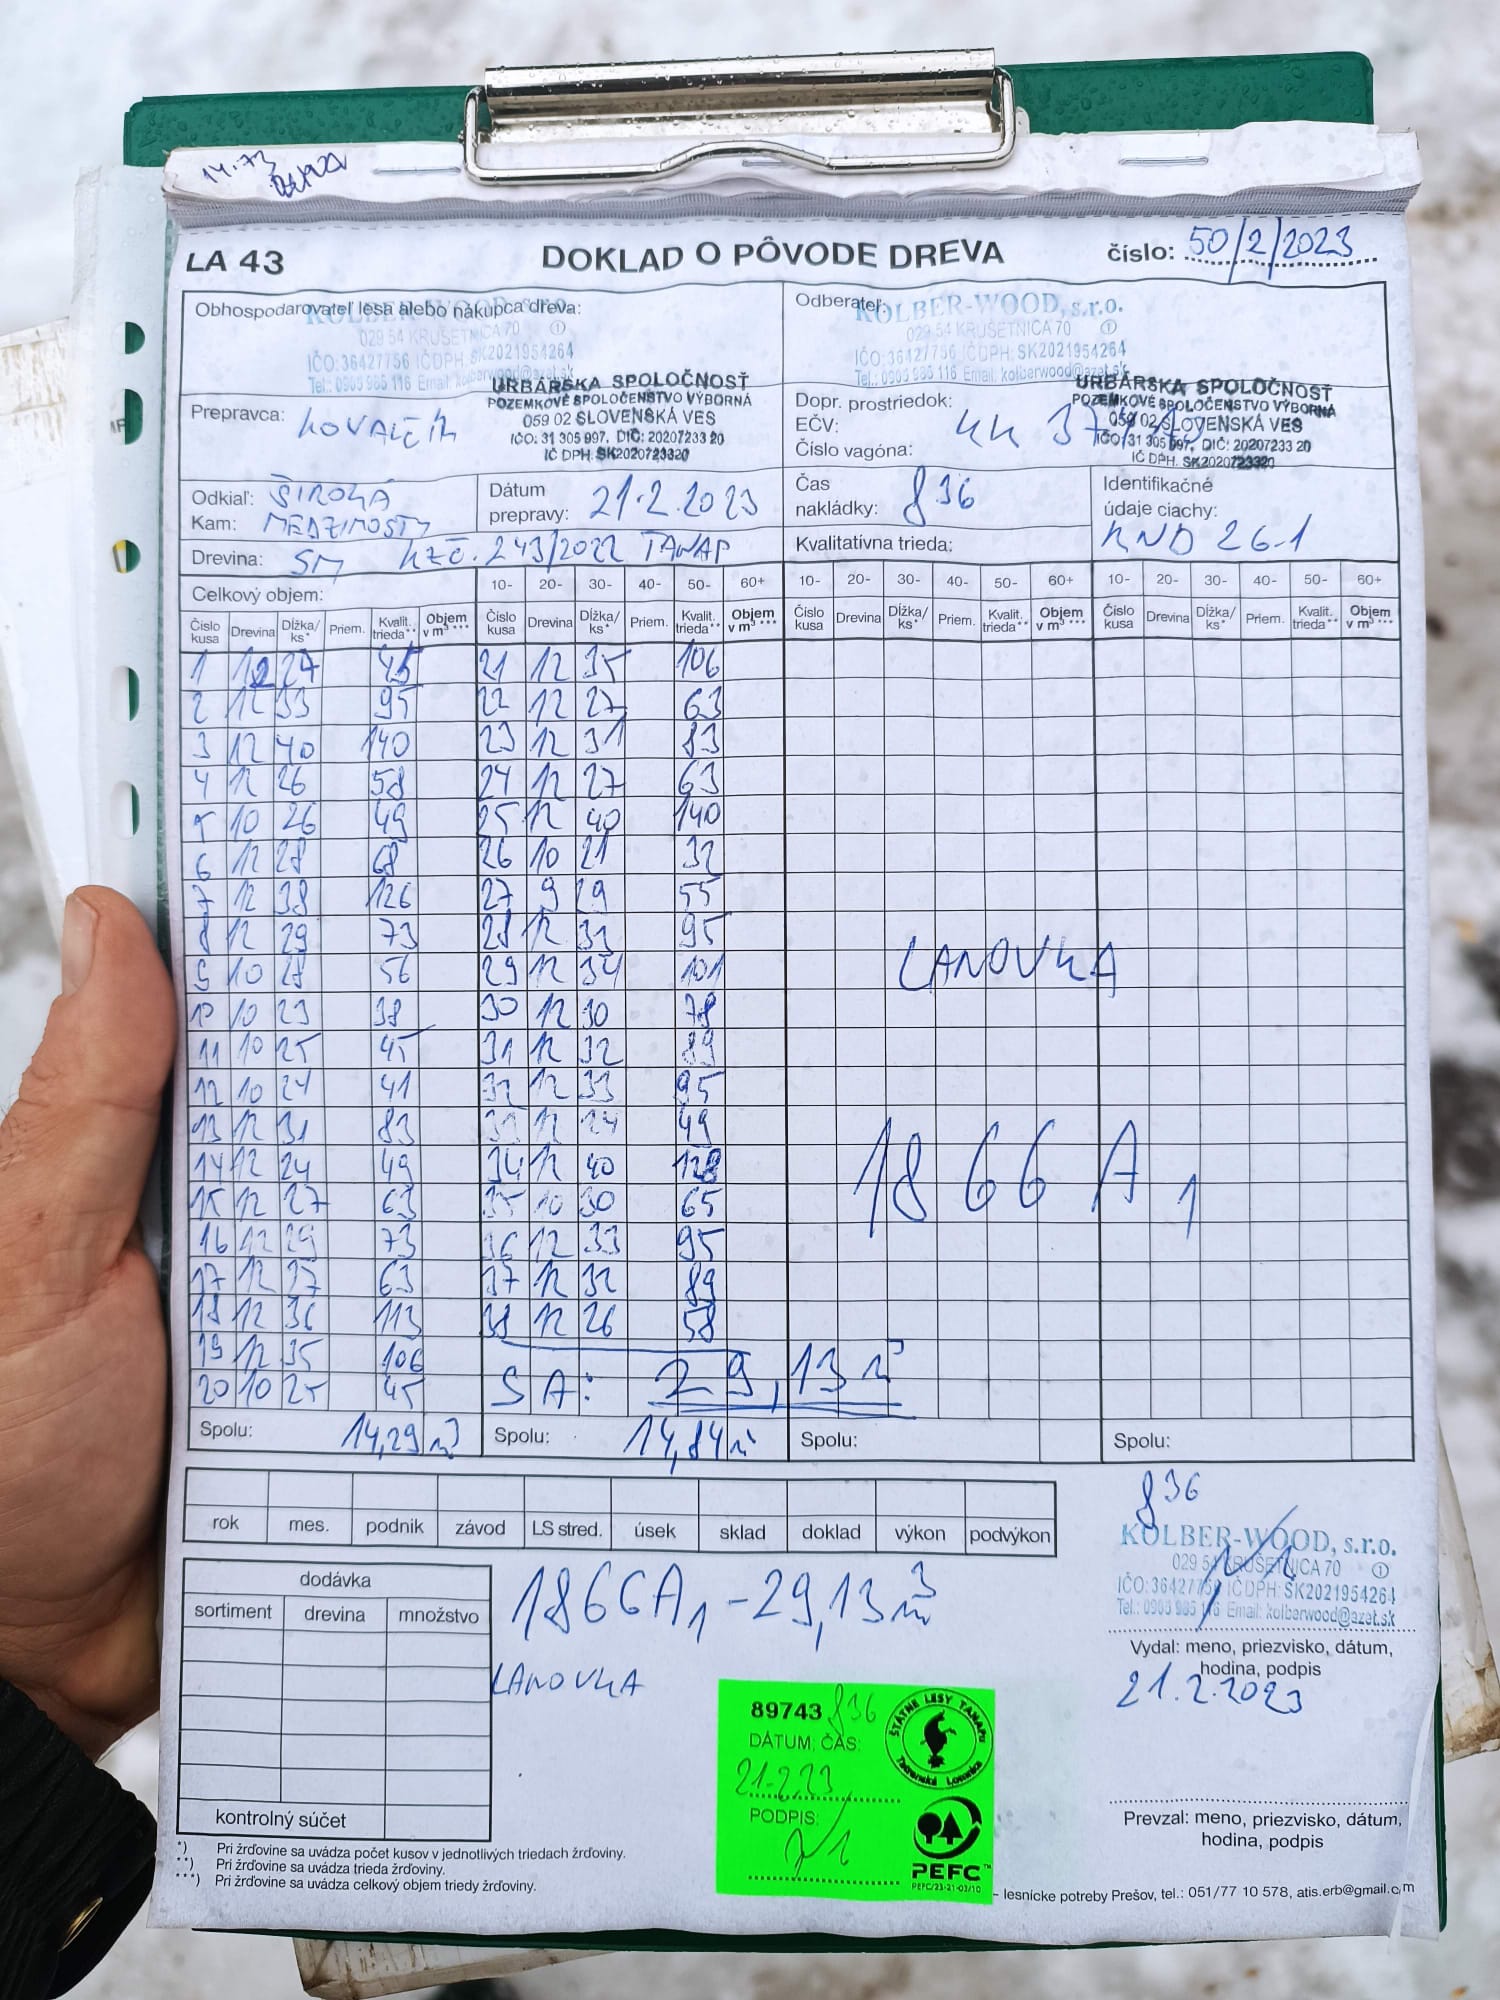 14.73
LA 43
DOKLAD O PÔVODE DREVA
číslo: 50/2/2023
Obhospodarovateľ lesa alebo nákupca dreva:
KOLBER-WOOD, s.r.o.
029 54 KRUŠETNICA 70 ①
IČO: 36427756 IČDPH: SK2021954264
Tel.: 0905 985 116 Email: kolberwood@azet.sk
URBÁRSKA SPOLOČNOSŤ
POZEMKOVÉ SPOLOČENSTVO VÝBORNÁ
059 02 SLOVENSKÁ VES
IČO: 31 305 997, DIČ: 20207233 20
IČ DPH. SK2020723320
Odberateľ:
KOLBER-WOOD, s.r.o.
029 54 KRUŠETNICA 70 ①
IČO: 36427756 IČDPH: SK2021954264
Tel.: 0905 985 116 Email: kolberwood@azet.sk
URBÁRSKA SPOLOČNOSŤ
POZEMKOVÉ SPOLOČENSTVO VÝBORNÁ
059 02 SLOVENSKÁ VES
IČO: 31 305 997, DIČ: 20207233 20
IČ DPH. SK2020723320
Prepravca: KOVALČÍK
Dopr. prostriedok:
EČV: KK
Číslo vagóna:
Odkiaľ: ŠIROKÁ
Kam: MEDZIMOSTY
Dátum
prepravy: 21.2.2023
Čas
nakládky: 836
Identifikačné
údaje ciachy:
KND 261
Drevina: SM KZČ. 243/2022 TANAP
Kvalitatívna trieda:
Celkový objem: 10- 20- 30- 40- 50- 60+ 10- 20- 30- 40- 50- 60+ 10- 20- 30- 40- 50- 60+
Číslo kusa Drevina Dĺžka/ks* Priem. Kvalit. trieda** Objem v m³ *** Číslo kusa Drevina Dĺžka/ks* Priem. Kvalit. trieda** Objem v m³ *** Číslo kusa Drevina Dĺžka/ks* Priem. Kvalit. trieda** Objem v m³ *** Číslo kusa Drevina Dĺžka/ks* Priem. Kvalit. trieda** Objem v m³ ***
1 12 27 45 21 12 35 106
2 12 33 95 22 12 27 63
3 12 40 140 23 12 31 83
4 12 26 58 24 12 27 63
5 10 26 49 25 12 40 140
6 12 28 68 26 10 21 32
7 12 38 126 27 9 29 55
8 12 29 73 28 12 33 95
9 10 28 56 29 12 34 101
10 10 23 38 30 12 30 78
11 10 25 45 31 12 32 89
12 10 24 41 32 12 33 95
13 12 31 83 33 12 24 49
14 12 24 49 34 12 40 128
15 12 27 63 35 10 30 65
16 12 29 73 36 12 33 95
17 12 27 63 37 12 32 89
18 12 36 113 38 12 26 58
19 12 35 106
20 10 25 45 SA: 29,13 m³
LANOVKA
1866 A1
Spolu: 14,29 m³ Spolu: 14,84 m³ Spolu: Spolu:
rok mes. podnik závod LS stred. úsek sklad doklad výkon podvýkon
836
KOLBER-WOOD, s.r.o.
029 54 KRUŠETNICA 70 ①
IČO: 36427756 IČDPH: SK2021954264
Tel.: 0905 985 116 Email: kolberwood@azet.sk
Vydal: meno, priezvisko, dátum,
hodina, podpis
21.2.2023
dodávka
sortiment drevina množstvo
kontrolný súčet
1866A1 - 29,13 m³
LANOVKA
89743 836
DÁTUM; ČAS:
21.2.23
PODPIS:
ŠTÁTNE LESY TANAPu
Tatranská Lomnica
PEFC™
PEFC/23-21-03/10
Prevzal: meno, priezvisko, dátum,
hodina, podpis
*) Pri žrďovine sa uvádza počet kusov v jednotlivých triedach žrďoviny.
**) Pri žrďovine sa uvádza trieda žrďoviny.
***) Pri žrďovine sa uvádza celkový objem triedy žrďoviny.
- lesnícke potreby Prešov, tel.: 051/77 10 578, atis.erb@gmail.com